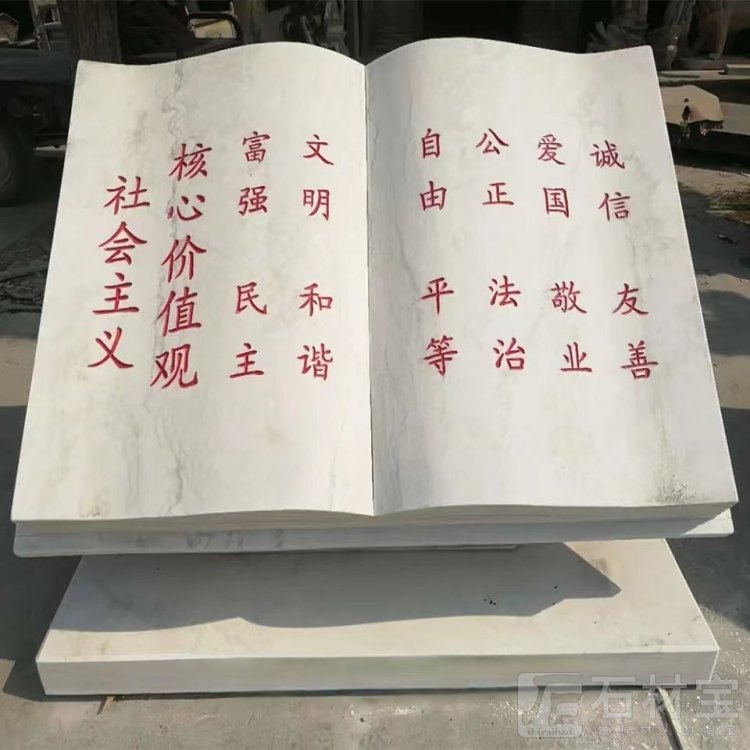 社会主义
核心价值观
富强 民主
文明 和谐
自由 平等
公正 法治
爱国 敬业
诚信 友善
石材宝
shicaibao